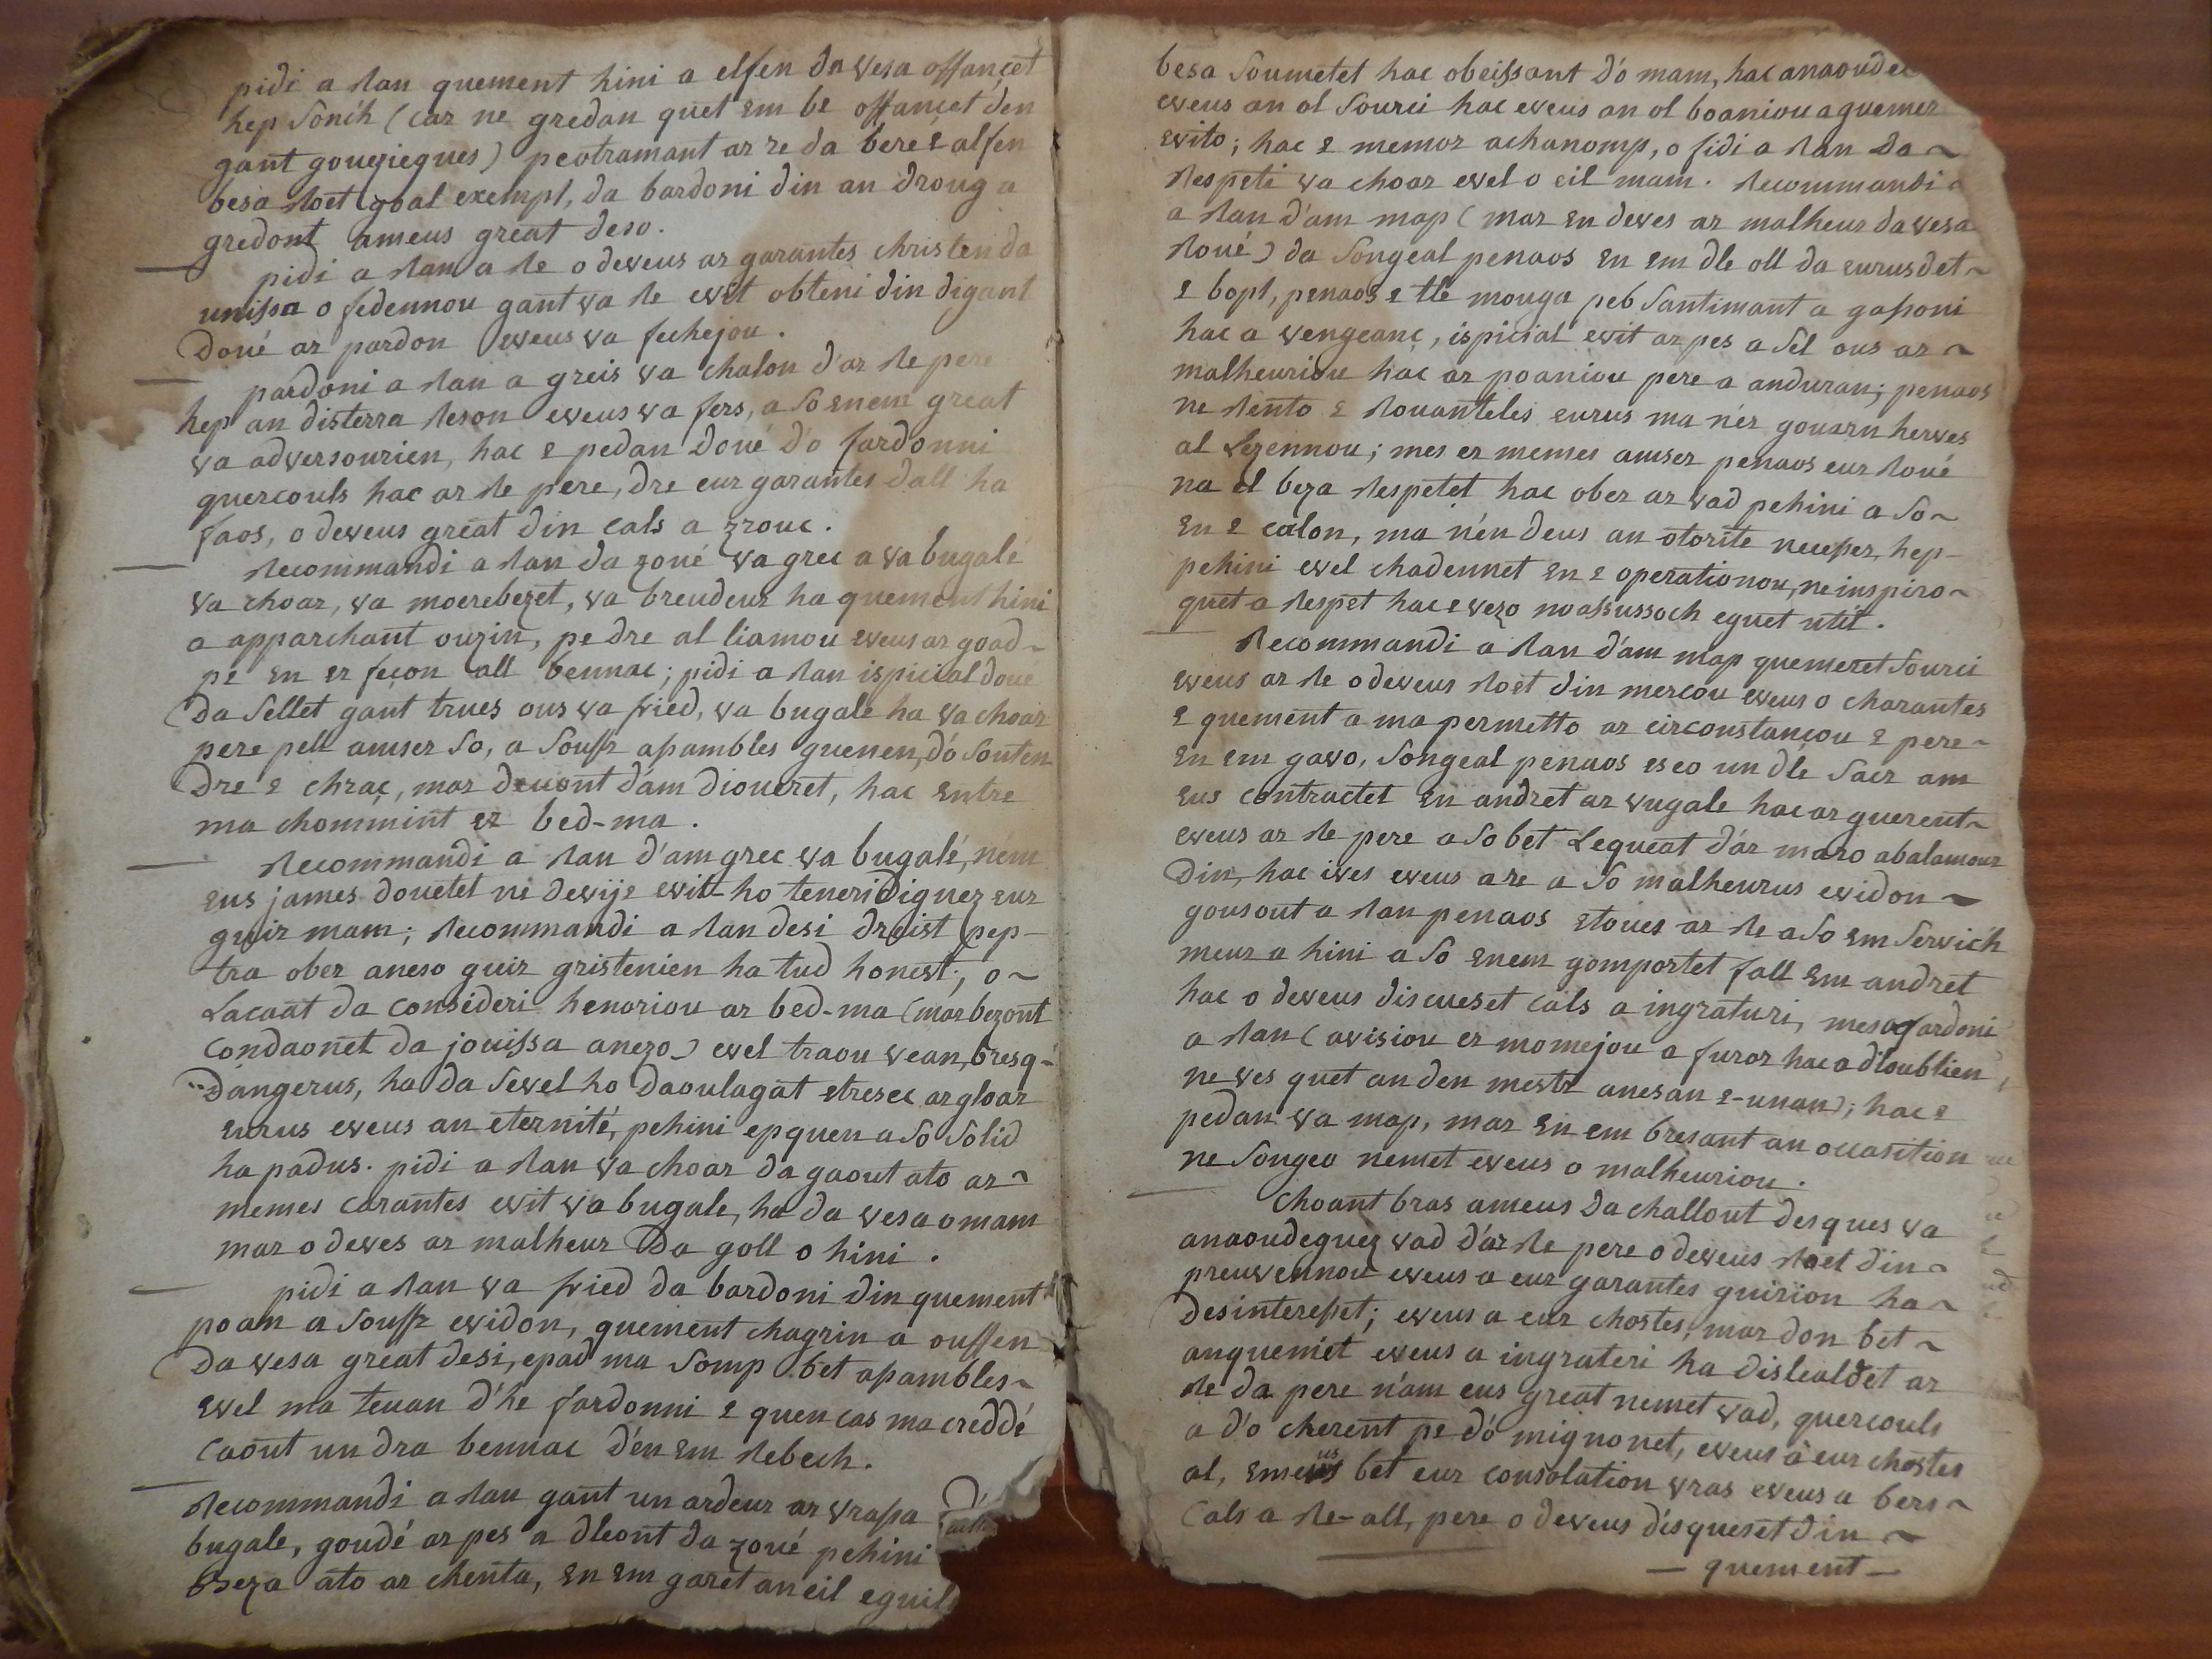 pidi a ran quement hini a elfen da vesa offancet
hep sonch (car ne gredan quet em be offancet den
gant gouyiegues) peotramant ar re da bere e alfen
besa roet goal exempl, da bardoni din an droug a
gredont ameus great deso.
pidi a ran a re o deveus ar garantes christen da
unissa o fedennou gant va re evit obteni din digant
Doué ar pardon eveus va fechejou.
pardoni a ran a greis va chalon d'ar re pere
hep an disterra reson eveus va fers, a so enem great
va adversourien, hac e pedan Doué d'o fardonni
quercouls hac ar re pere, dre eur garantes dall ha
faos, o deveus great din cals a zrouc.
recommandi a ran da zoué va grec a va bugalé
va choar, va moerebezet, va breudeur ha quement hini
a apparchant ouzin, pe dre al liamou eveus ar goad ~
pe en er feçon all bennac; pidi a ran ispicial doue
da sellet gant trues ous va fried, va bugale ha va choar
pere pell amser so, a souffr assambles guenen, d'o souten
dre e chrac, mar deuont d'am dioueret, hac entre
ma chommint er bed-ma.
recommandi a ran d'am grec va bugalé, n'em
eus james douetet ne devije evit-ho teneridiguez eur
guir mam; recommandi a ran desi dreist pep-
tra ober aneso guir gristenien ha tud honest; o ~
Lacaat da consideri henoriou ar bed-ma (mar bezont
condaonet da jouissa anezo) evel traou vean, bresq-
dangerus, ha da sevel ho daoulagat etresec ar gloar
eurus eveus an eternité, pehini epquen a so solid
ha padus. pidi a ran va choar da gaout ato ar ~
memes carantes evit va bugale, ha da vesa o mam
mar o deves ar malheur da goll o hini.
pidi a ran va fried da bardoni din quement
poan a souffr evidon, quement chagrin a ouffen
da vesa great desi, epad ma somp bet assambles ~
evel ma teuan d'he fardonni e quen cas ma creddé
caout un dra bennac d'en em rebech.
recommandi a ran gant un ardeur ar vrassa d'
bugale, goudé ar pes a dleont da zoué pehini
veza ato ar chenta, en em garet an eil eguil
besa soumetet hac obeissant d'o mam, hac anaoudec
eveus an ol sourci hac eveus an ol boaniou a guemer
evito; hac e memor achanomp, o fidi a ran da ~
respeti va choar evel o eil mam. recommandi
a ran d'am map (mar en deves ar malheur da vesa
roué) da songeal penaos en em dle oll da eurusdet ~
e bopl, penaos e tle mouga peb santimant a gassoni
hac a vengeanç, ispicial evit ar pes a sel ous ar ~
malheuriou hac ar poaniou pere a anduran; penaos
ne rento e rouanteles eurus ma n'er gouarn herves
al Lezennou; mes er memes amser penaos eur roué
na el beza respetet hac ober ar vad pehini a so ~
en e calon, ma n'en deus an otorite necesser, hep-
pehini evel chadennet en e operationou, ne inspiro ~
quet a respet hac e vezo noassussoch eguet util.
Recommandi a ran d'am map quemeret sourci
eveus ar re o deveus roet din mercou eveus o charantes
e quement a ma permetto ar circonstançou e pere ~
en em gavo, songeal penaos es eo un dle sacr am
eus contractet en andret ar vugale hac ar guerent ~
eveus ar re pere a so bet Lequeat d'ar maro abalamour
din, hac ives eveus a re a so malheurus evidon ~
gousout a ran penaos etoues ar re a so em servich
meur a hini a so enem gomportet fall em andret
hac o deveus discueset cals a ingraturi, mes o fardoni
a ran (avisiou er momejou a furor hac a d'roublien
ne ves quet an den mestr anesan e-unan); hac e
pedan va map, mar en em bresant an occasition
ne songeo nemet eveus o malheuriou.
choant bras ameus da challout desques va
anaoudeguez vad d'ar re pere o deveus roet din ~
preuvennou eveus a eur garantes guirion ha ~
desinteresset; eveus a eur chostes, mar don bet ~
anquemet eveus a ingrateri ha disleal­det ar
re da pere n'am eus great nemet vad, quercouls
a d'o cherent pe d'o mignonet, eveus a eur chostes
al, emeus bet eur consolation vras eveus a bers ~
cals a re-all, pere o deveus disqueset din ~
— quement —